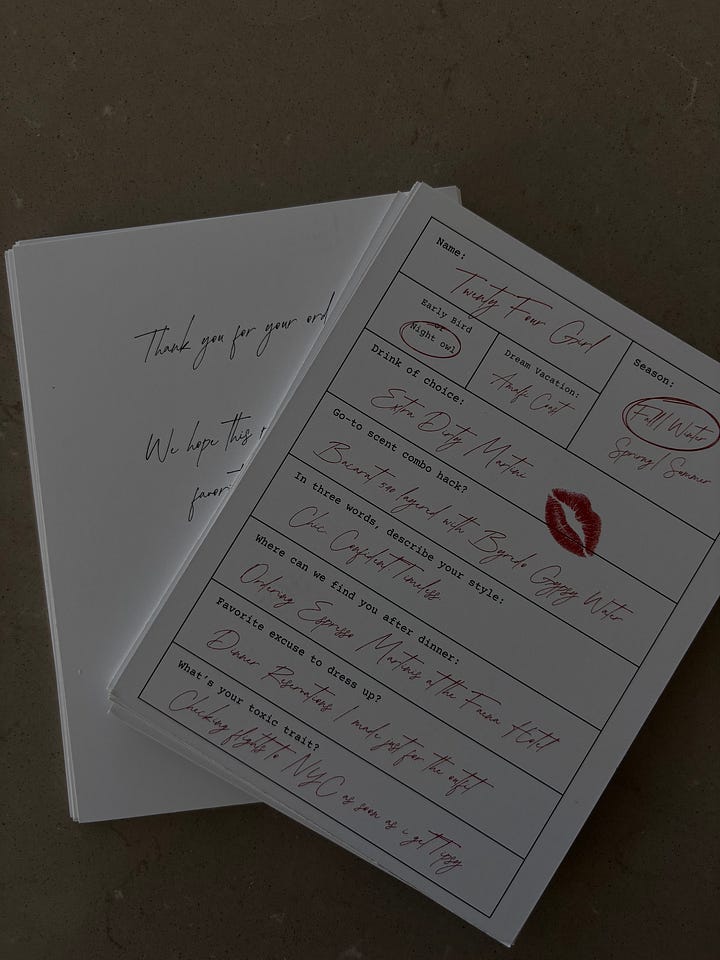 Thank you for your ord
We hope this
favori
Name:
Twenty Four Girl
Early Bird
or
Night owl
Dream Vacation:
Amalfi Coast
Season:
Fall/Winter
Spring/Summer
Drink of choice:
Extra Dirty Martini
Go-to scent combo hack?
Bacarat 540 layered with Byredo Gypsy Water
In three words, describe your style:
Chic Confident Timeless
Where can we find you after dinner:
Ordering Espresso Martinis at the Faena Hotel
Favorite excuse to dress up?
Dinner Reservations I made just for the outfit
What's your toxic trait?
Checking flights to NYC as soon as i get Tipsy